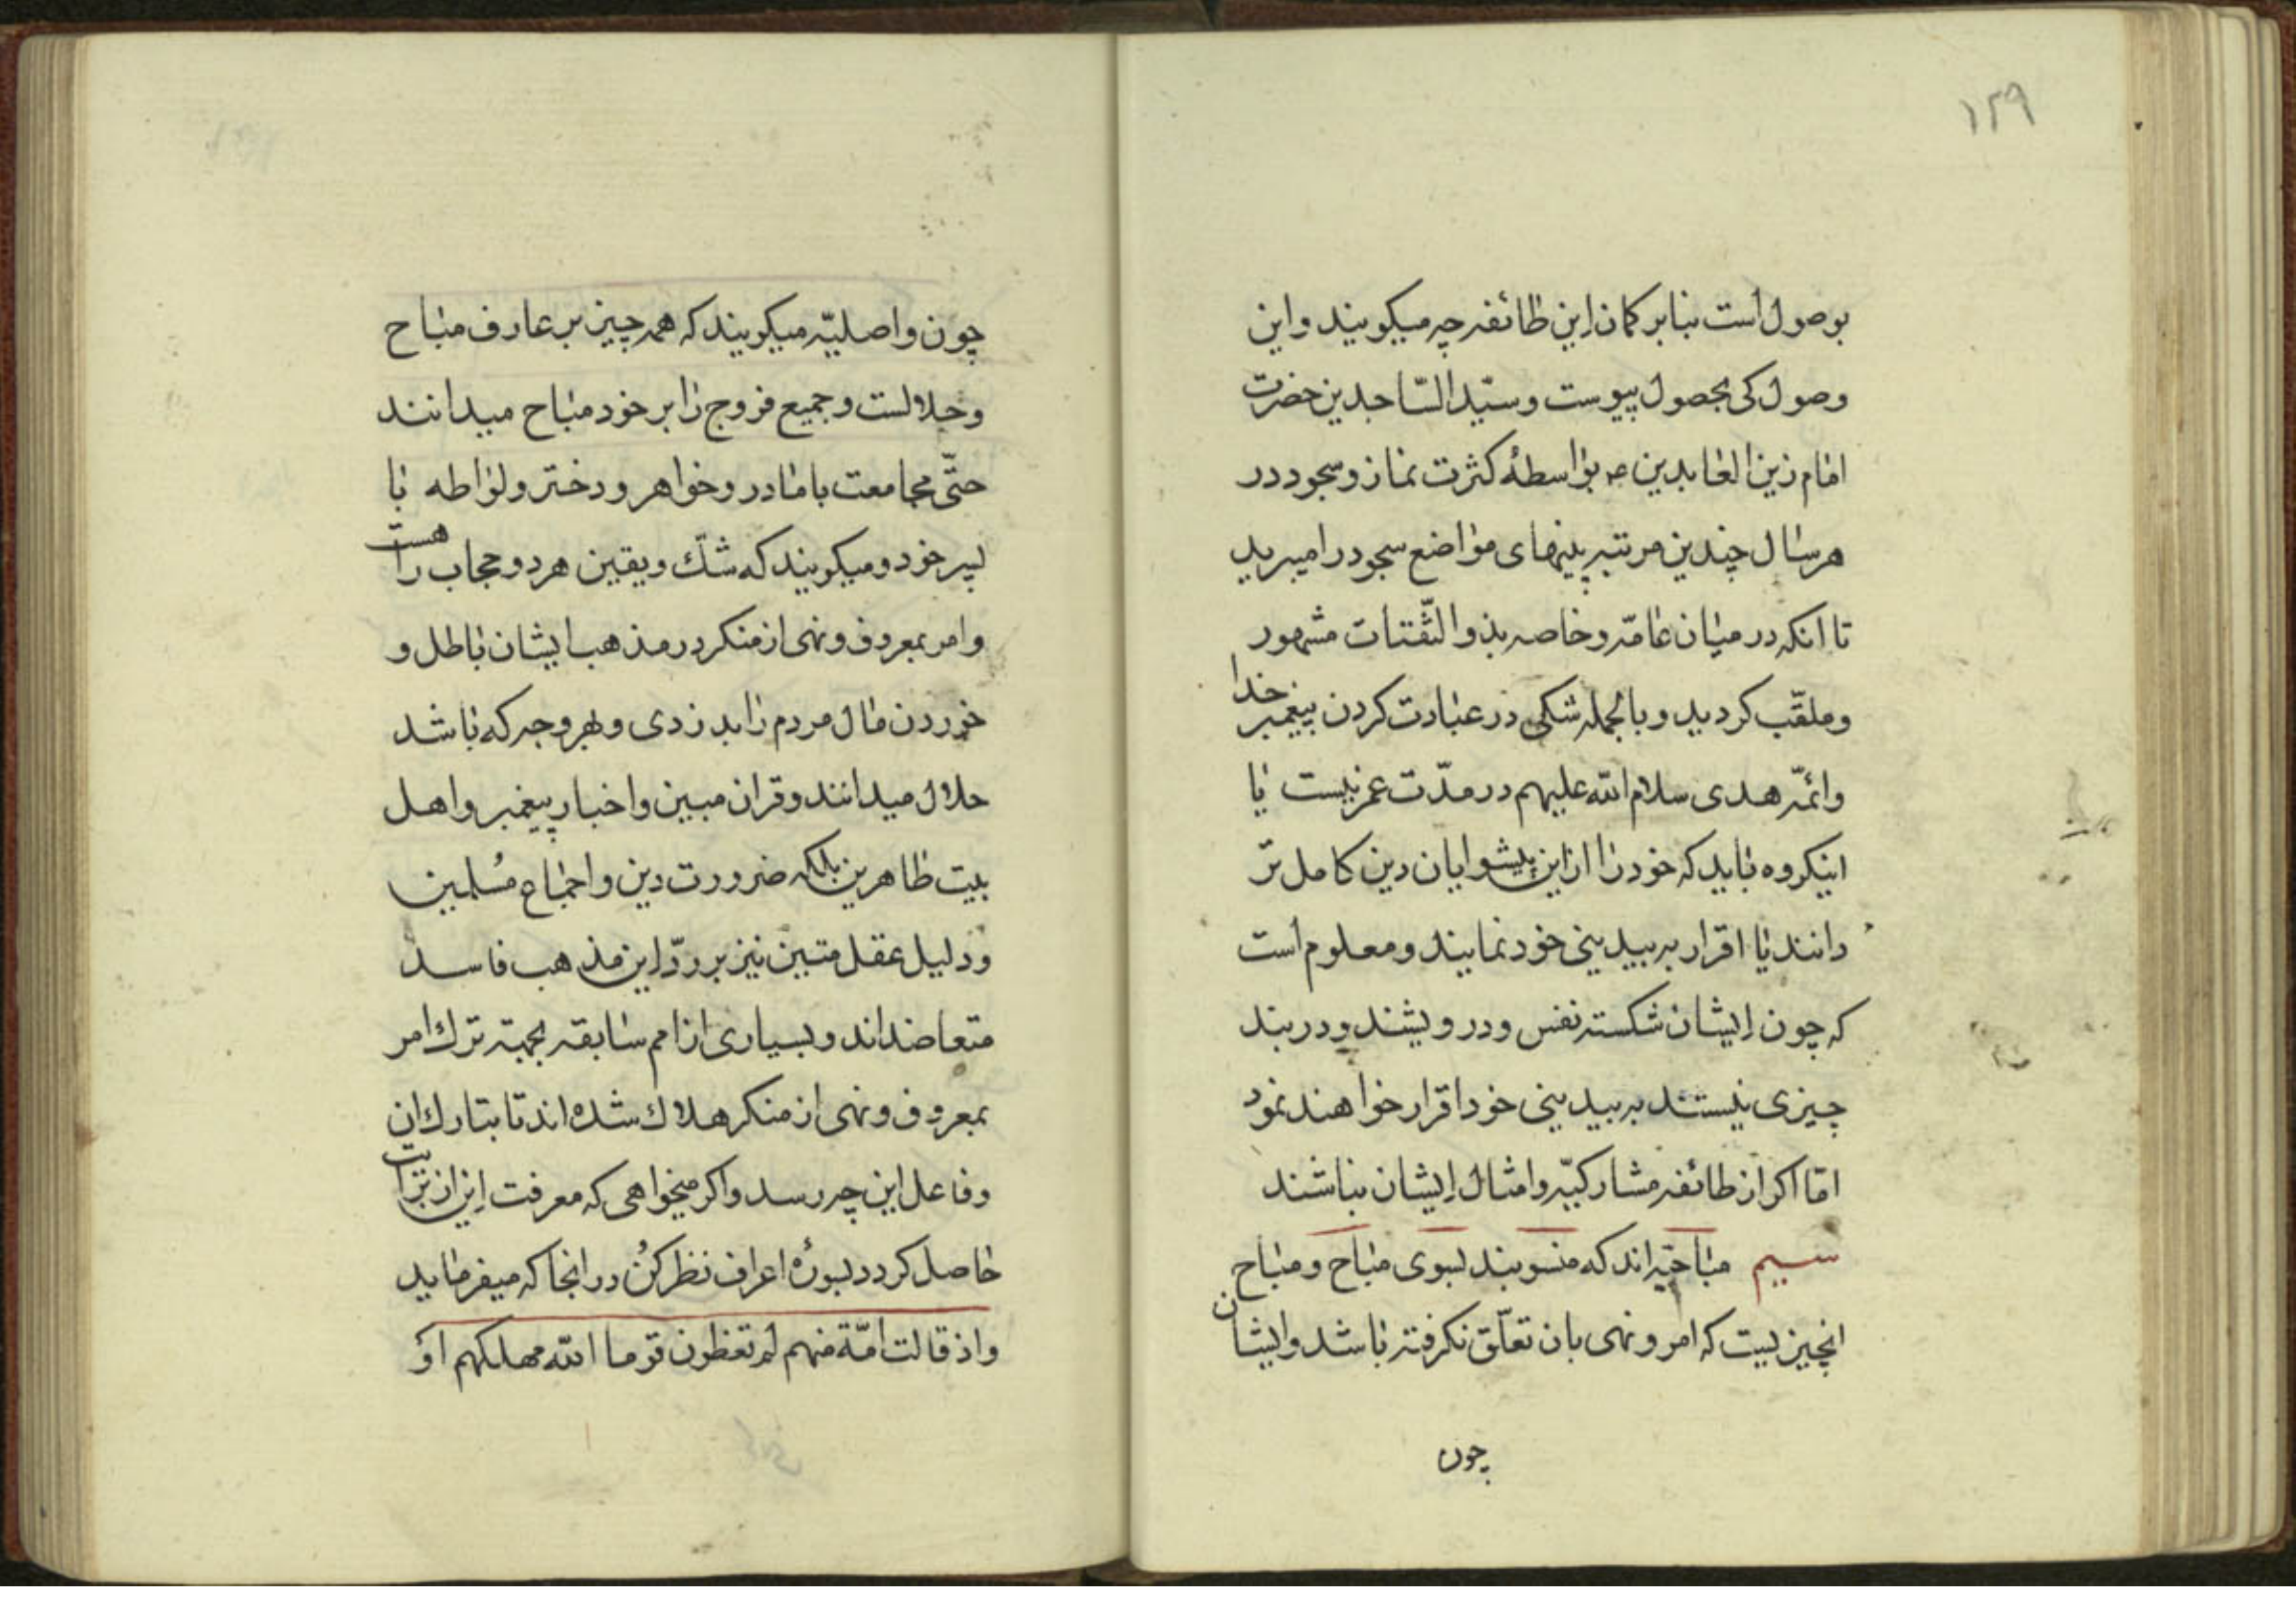 ۱۲۹
بوصول است بنابر کمان این طائفه چه میکویند و این
وصول کی بحصول پیوست و سیّد السّاجدین حضرت
امام زین العابدین ع بواسطهٔ کثرت نماز و سجود در
هر سال چندین مرتبه پینهای مواضع سجود را میبرید
تا انکه در میان عامّه و خاصه بذو الثّفنات مشهور
و ملقّب کردید و بالجمله شکی در عبادت کردن پیغمبر خدا
و ائمّه هدی سلام الله علیهم در مدّت عمر نیست یا
اینکروه باید که خود را از این پیشوایان دین کامل تر
دانند یا اقرار به بیدینی خود نمایند و معلوم است
که چون ایشان شکسته نفس و درویشند و در بند
چیزی نیستند به بیدینی خود اقرار خواهند نمود
امّا اکر از طائفه مشارکیّه و امثال ایشان نباشند
سیم مباحیّه اند که منسوبند بسوی مباح و مباح
انچیزیست که امر و نهی بان تعلّق نکرفته باشد و ایشان
چون
چون واصلیّه میکویند که همه چیز بر عارف مباح
و حلالست و جمیع فروج را بر خود مباح میدانند
حتّی مجامعت با مادر و خواهر و دختر و لواطه با
پسر خود و میکویند که شکّ و یقین هر دو حجاب راهست
و امر بمعروف و نهی از منکر در مذهب ایشان باطل و
خوردن مال مردم را بدزدی و بهر وجه که باشد
حلال میدانند و قران مبین و اخبار پیغمبر و اهل
بیت طاهرین بلکه ضرورت دین و اجماع مُسلمین
و دلیل عقل متین نیز بر ردّ این مذهب فاسد
متعاضداند و بسیاری از امم سابقه بجهة ترک امر
بمعروف و نهی از منکر هلاک شده اند تا بتارک ان
و فاعل این چه رسد و اکر میخواهی که معرفت این از برایت
حاصل کردد بسورهٔ اعراف نظر کُن در انجا که میفرماید
و اذ قالت امّة منهم لم تعظون قوما الله مهلکهم او